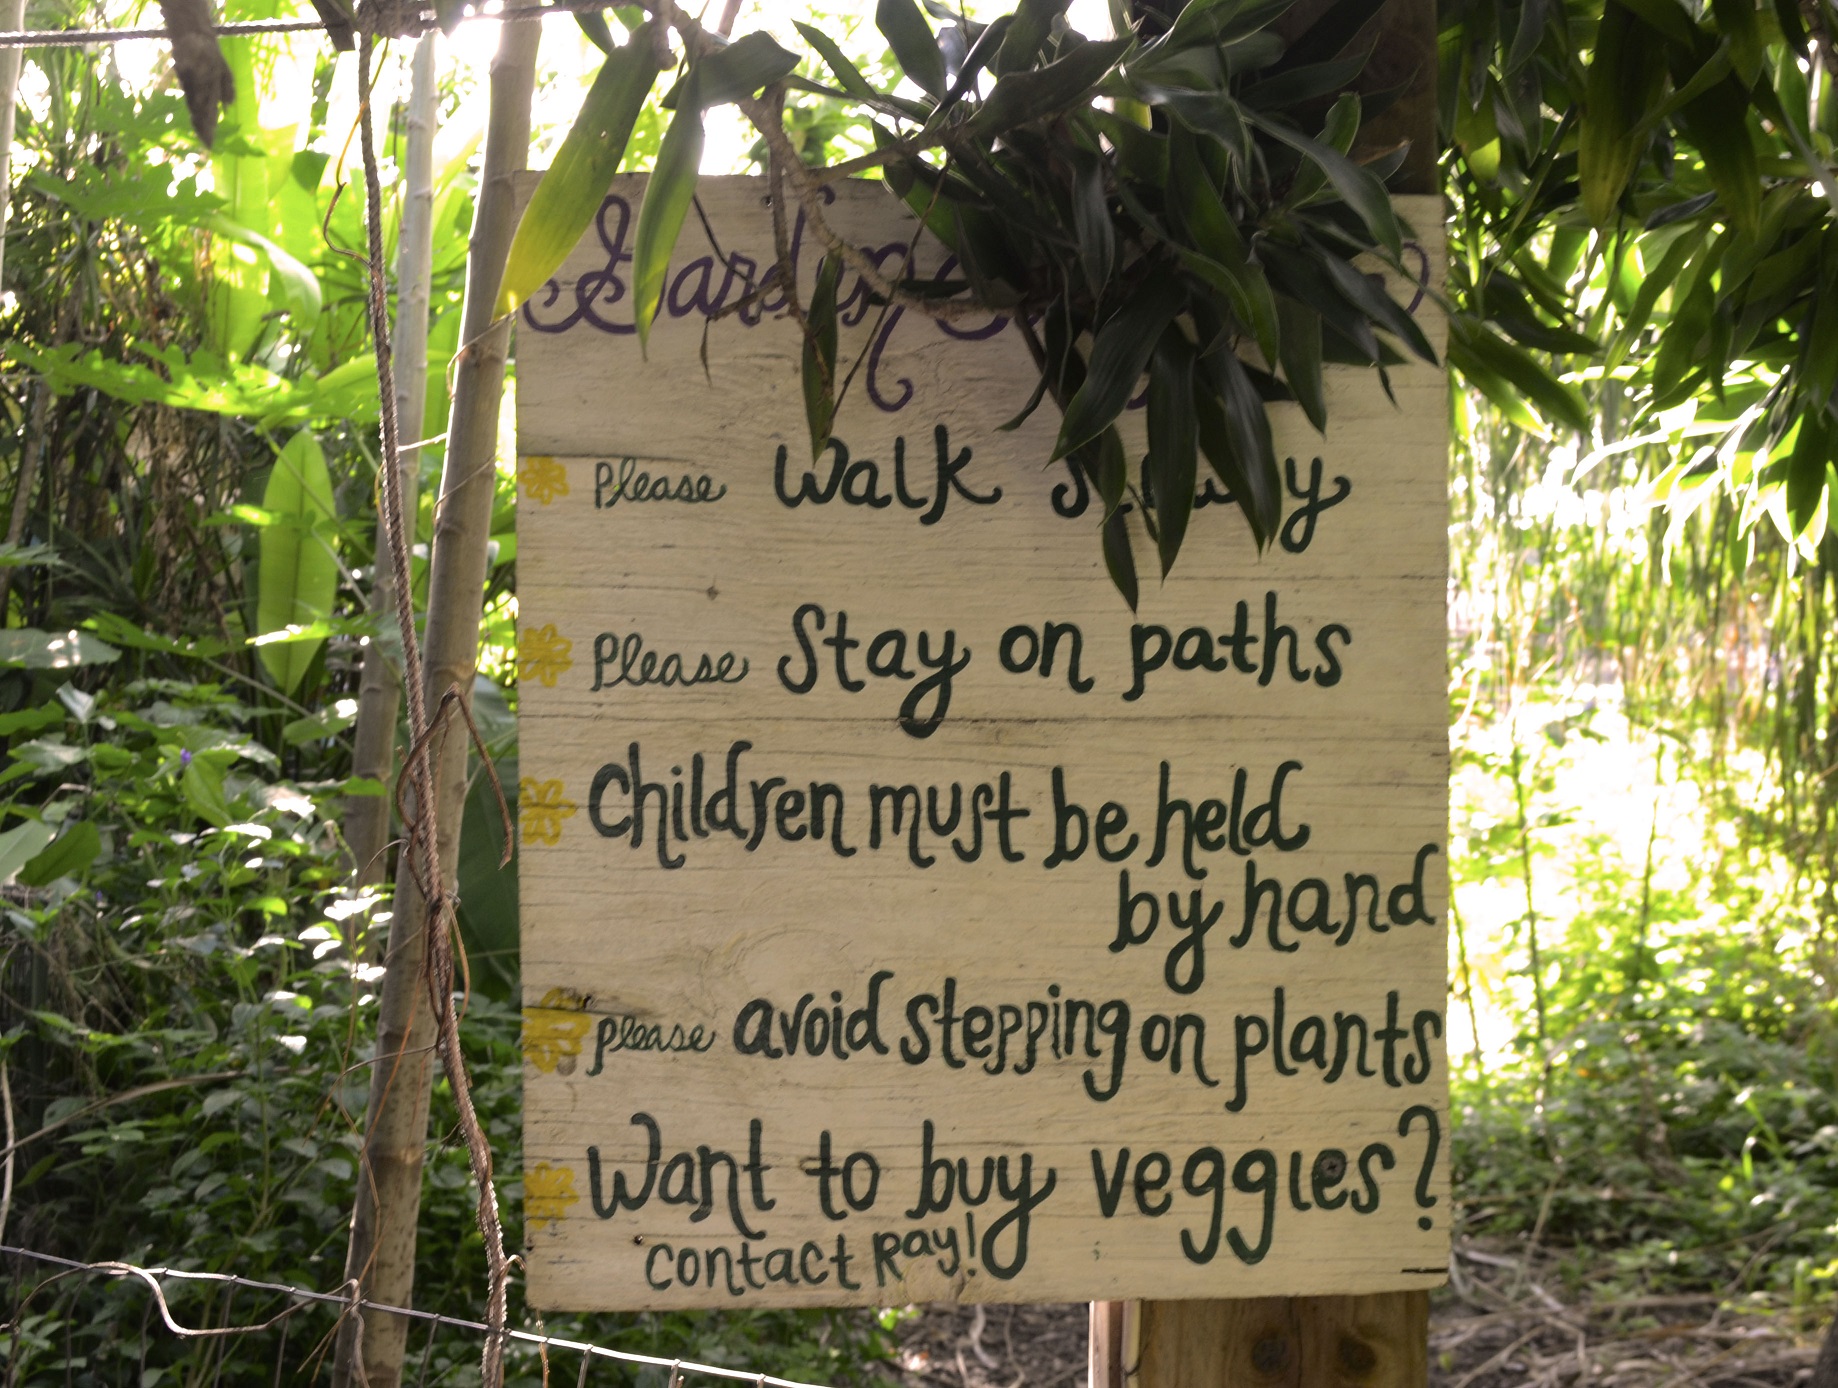 Please Walk slowly
Please Stay on paths
Children must be held
by hand
please avoid stepping on plants
Want to buy veggies?
contact Ray!